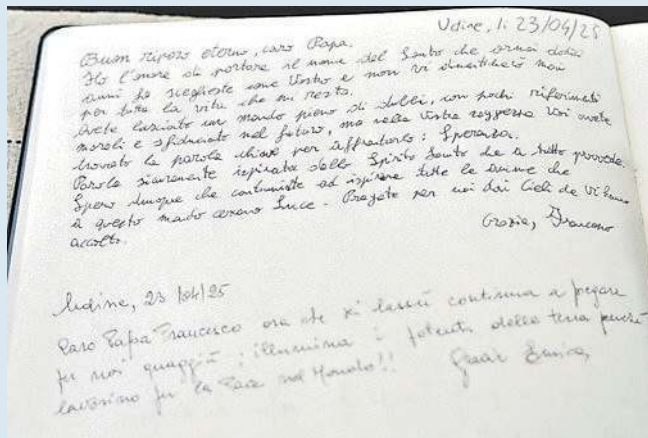 Udine, lì 23/04/25
Buon riposo eterno, caro Papa.
Ho l'onore di portare il nome del Santo che ormai dodici
anni fa sceglieste come Vostro e non vi dimenticherò mai
per tutta la vita che mi resta.
Avete lasciato un mondo pieno di dubbi, con pochi riferimenti
morali e sfiduciato nel futuro, ma nella Vostra saggezza Voi avete
trovato la parola chiave per affrontarlo: Speranza.
Parola sicuramente ispirata dallo Spirito Santo che a tutto provvede.
Spero dunque che continuiate ad ispirare tutte le anime che
a questo mondo cercano Luce. Pregate per noi dai Cieli che Vi hanno
accolto.
Grazie, Francesco
Udine, 23/04/25
Caro Papa Francesco ora che sei lassù continua a pregare
per noi quaggiù; illumina i potenti della terra perché
lavorino per la Pace nel Mondo!! Grazie